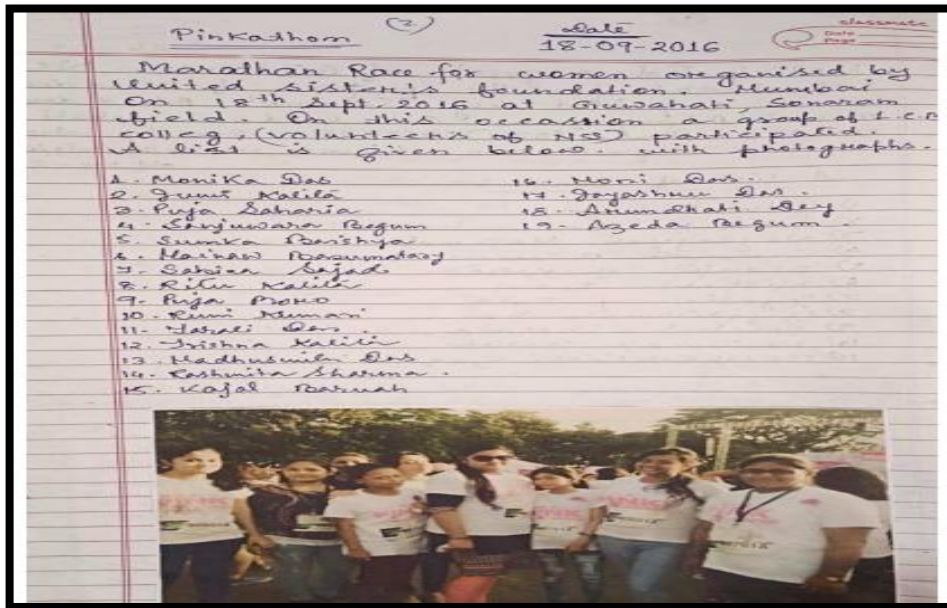 (2)
Pinkathom
Date
18-09-2016
classmate
Date
Page
Marathan Race for women oreganised by
United Sister's foundation. Mumbai
On 18th Sept. 2016 at Guwahati, Sonaram
field. On this occassion a group of L.C.B
colleg, (volunteers of NSS) participated.
A list is given below with photographs.
1. Monika Das
2. Jumi Kalita
3. Puja Saharia
4. Sanjuwara Begum
5. Barshya
6. Mainaw Basumatary
7. Sabina Sajad
8. Ritu Kalita
9. Puja
10. Rumi Kumari
11. Das.
12. Trishna Kalita
13. Madhusmita Das
14. Rashmita Sharma.
15. Kajal Baruah
16. Moni Das.
17. Jayashree Das.
18. Arundhati Dey
19. Azeda Begum.